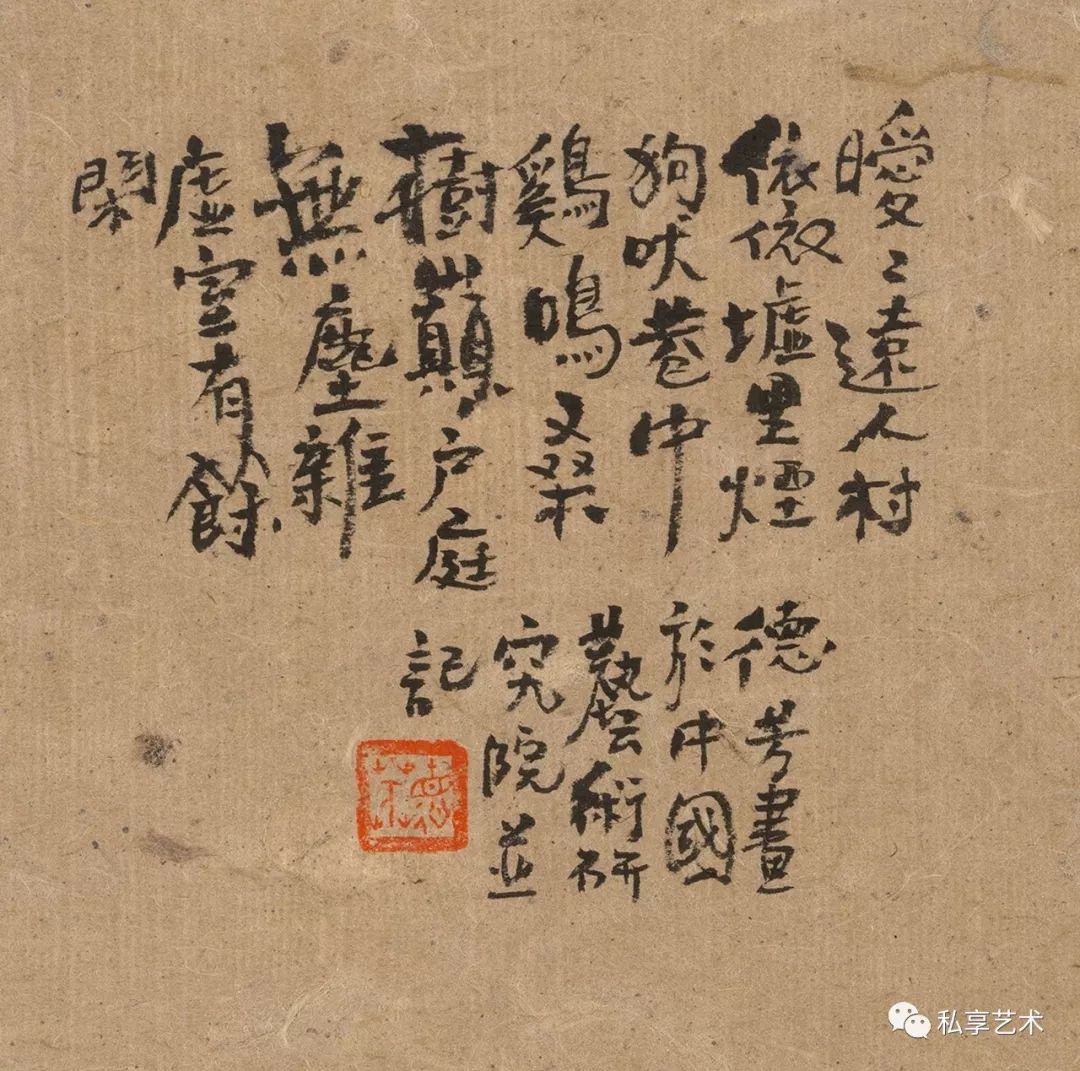 曖〻遠人村
依依墟里煙
狗吠巷中
鷄鳴桑
樹巔户庭
無塵雜
虛室有餘
閑
德芳畫
於中國
藝術研
究院並
記
德芳
私享艺术